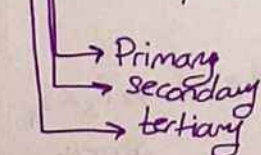 → Primary
→ secondary
→ tertiary